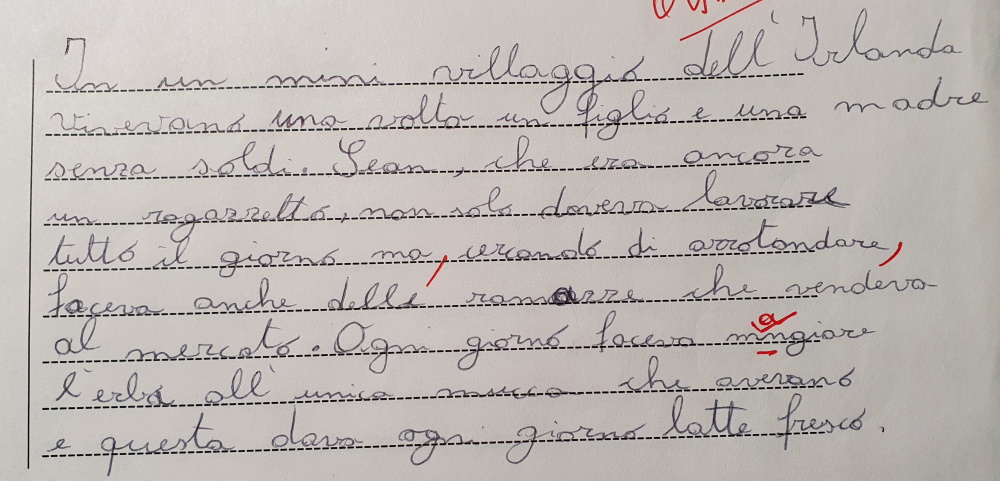 In un mini villaggio dell'Irlanda
vivevano una volta un figlio e una madre
senza soldi. Sean, che era ancora
un ragazzetto, non solo doveva lavorare
tutto il giorno ma, cercando di arrotondare,
faceva anche delle ramazze che vendeva
al mercato. Ogni giorno faceva mangiare
l'erba all'unica mucca che avevano
e questa dava ogni giorno latte fresco.